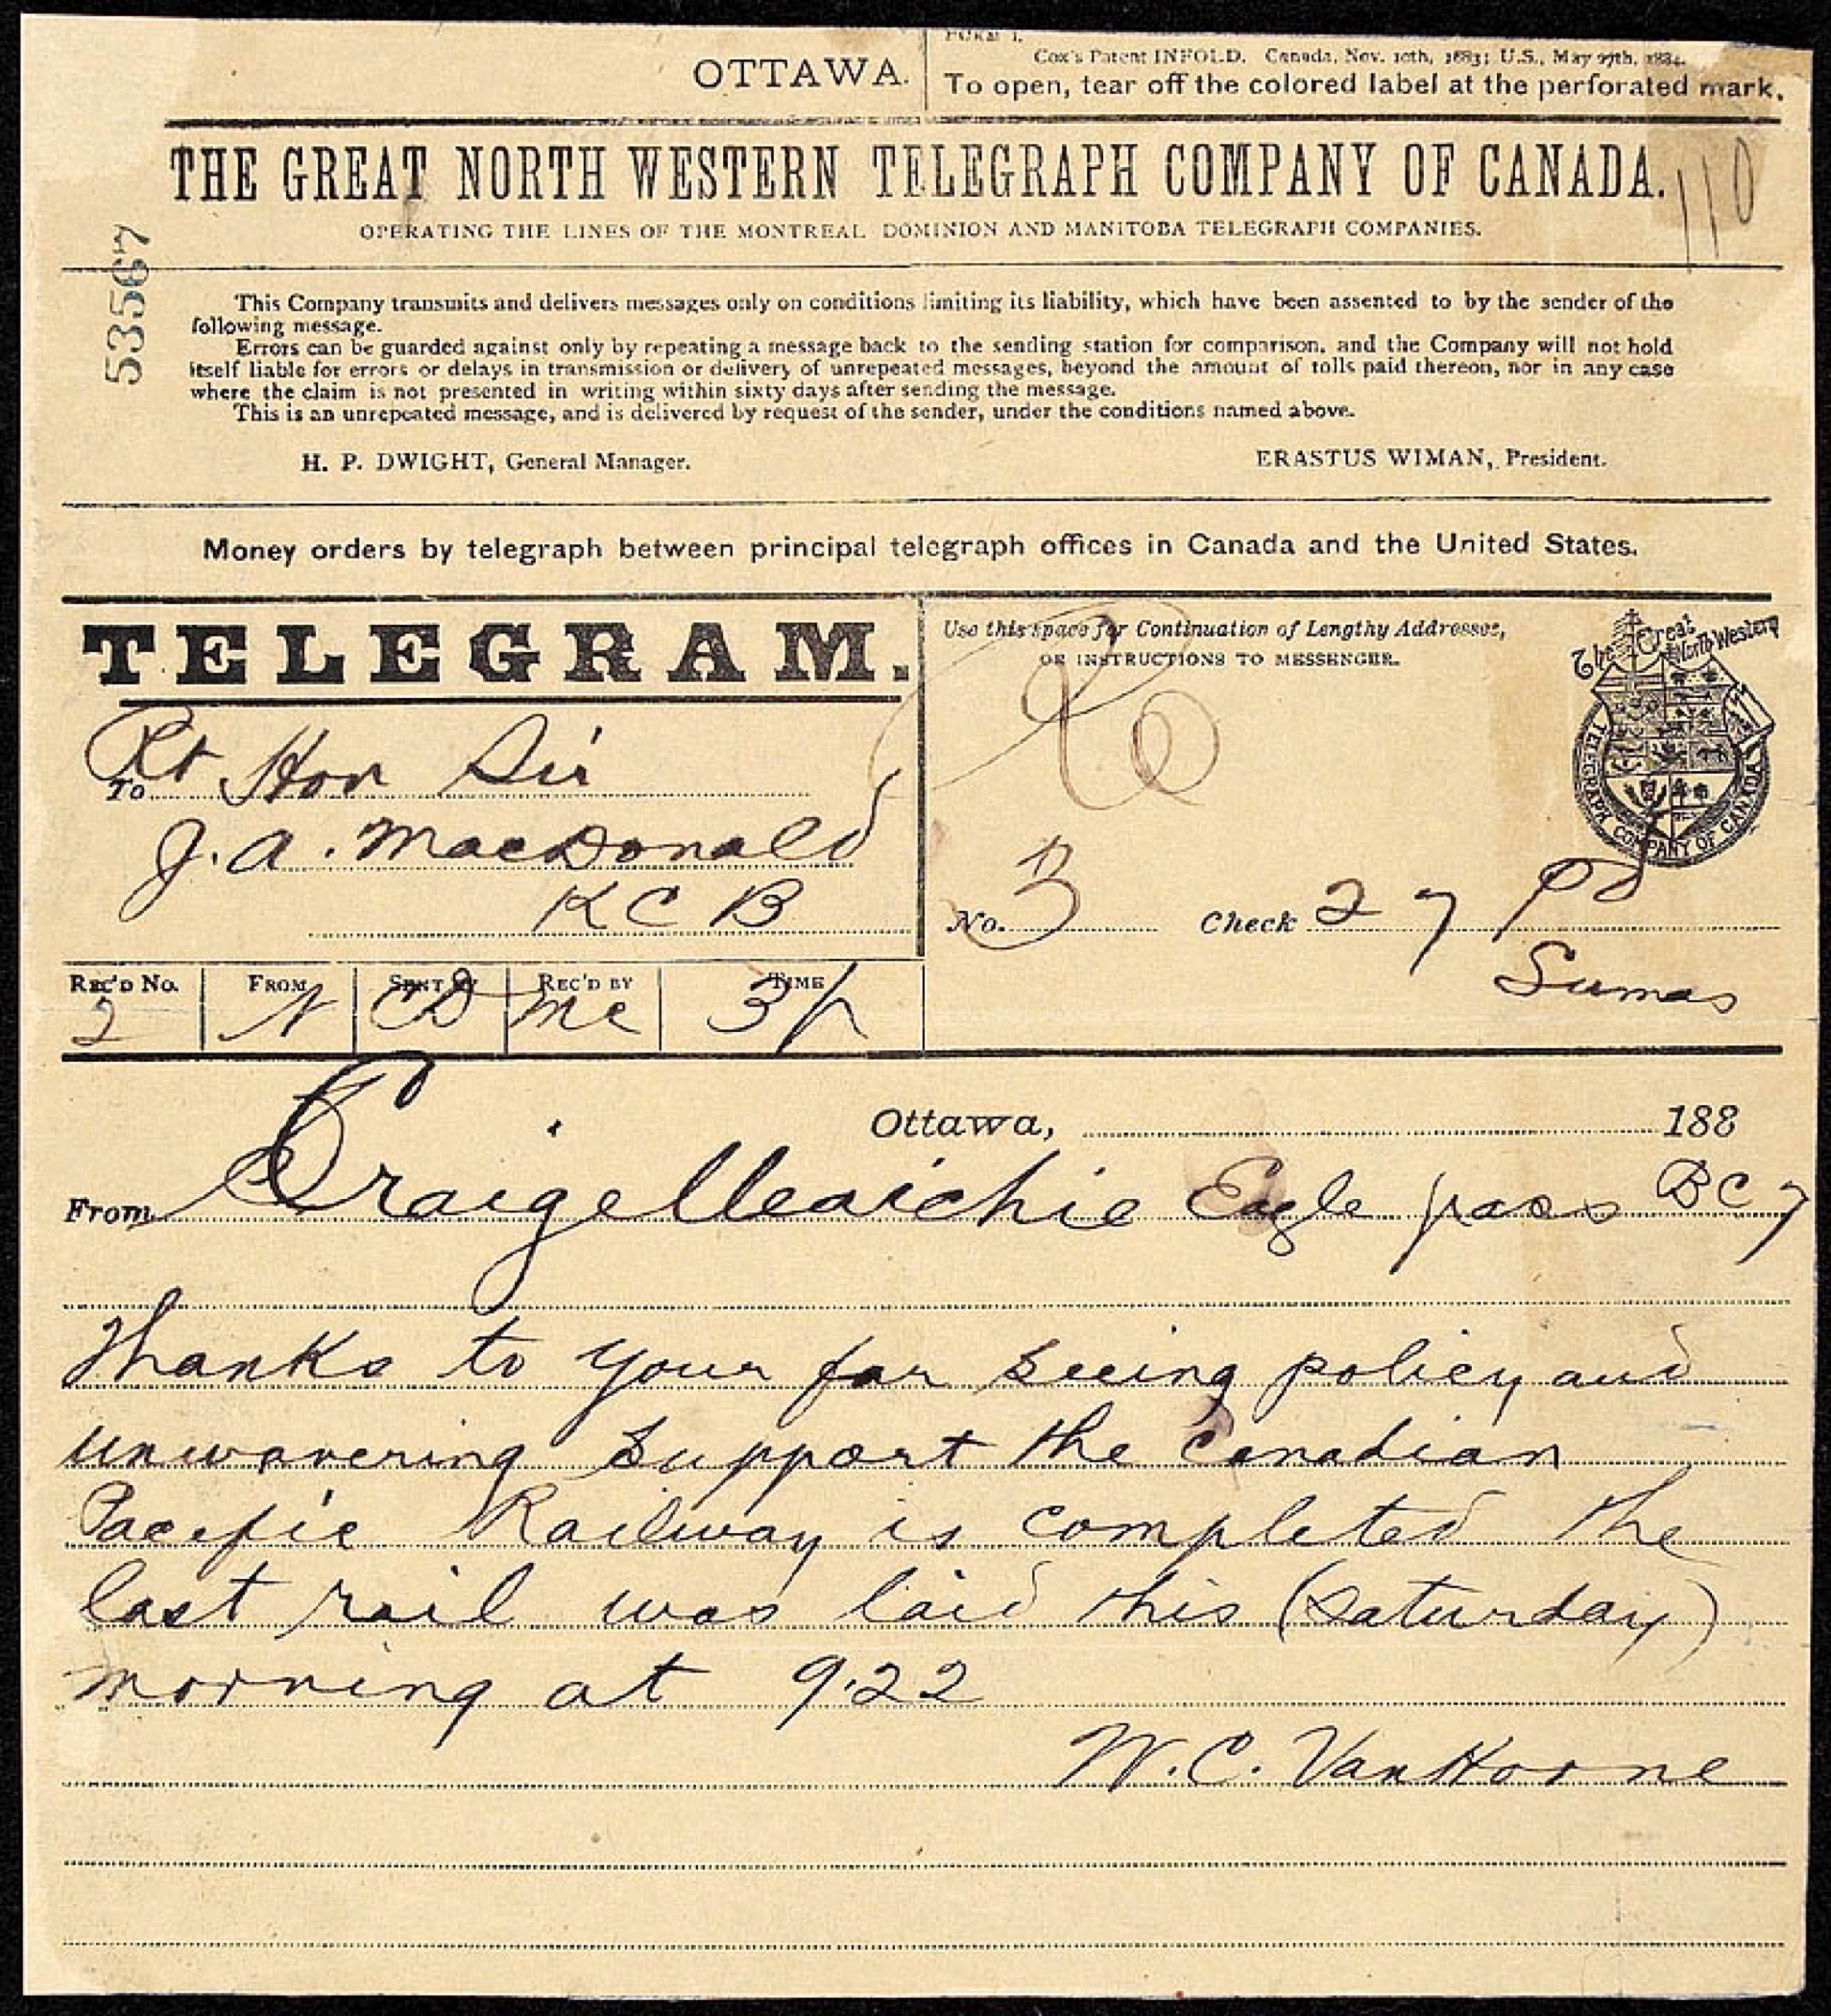 OTTAWA.
FORM 1.
Cox's Patent INFOLD. Canada, Nov. 10th, 1883; U.S., May 27th, 1884.
To open, tear off the colored label at the perforated mark.
THE GREAT NORTH WESTERN TELEGRAPH COMPANY OF CANADA.
110
OPERATING THE LINES OF THE MONTREAL DOMINION AND MANITOBA TELEGRAPH COMPANIES.
53567
This Company transmits and delivers messages only on conditions limiting its liability, which have been assented to by the sender of the
following message.
Errors can be guarded against only by repeating a message back to the sending station for comparison, and the Company will not hold
itself liable for errors or delays in transmission or delivery of unrepeated messages, beyond the amount of tolls paid thereon, nor in any case
where the claim is not presented in writing within sixty days after sending the message.
This is an unrepeated message, and is delivered by request of the sender, under the conditions named above.
H. P. DWIGHT, General Manager.
ERASTUS WIMAN, President.
Money orders by telegraph between principal telegraph offices in Canada and the United States.
TELEGRAM.
Use this space for Continuation of Lengthy Addresses,
OR INSTRUCTIONS TO MESSENGER.
The Great North Western
TELEGRAPH COMPANY OF CANADA
To Rt Hon Sir
J. A. MacDonald
K C B
No. 3 Check 27 pd
Sumas
REC'D No. FROM SENT BY REC'D BY TIME
2 N CD Mc 3/p
Ottawa, 188
From Craigellaichie Eagle pass BC 7
Thanks to your far seeing policy and
unwavering support the Canadian
Pacific Railway is completed the
last rail was laid this (Saturday)
morning at 9.22
W. C. VanHorne